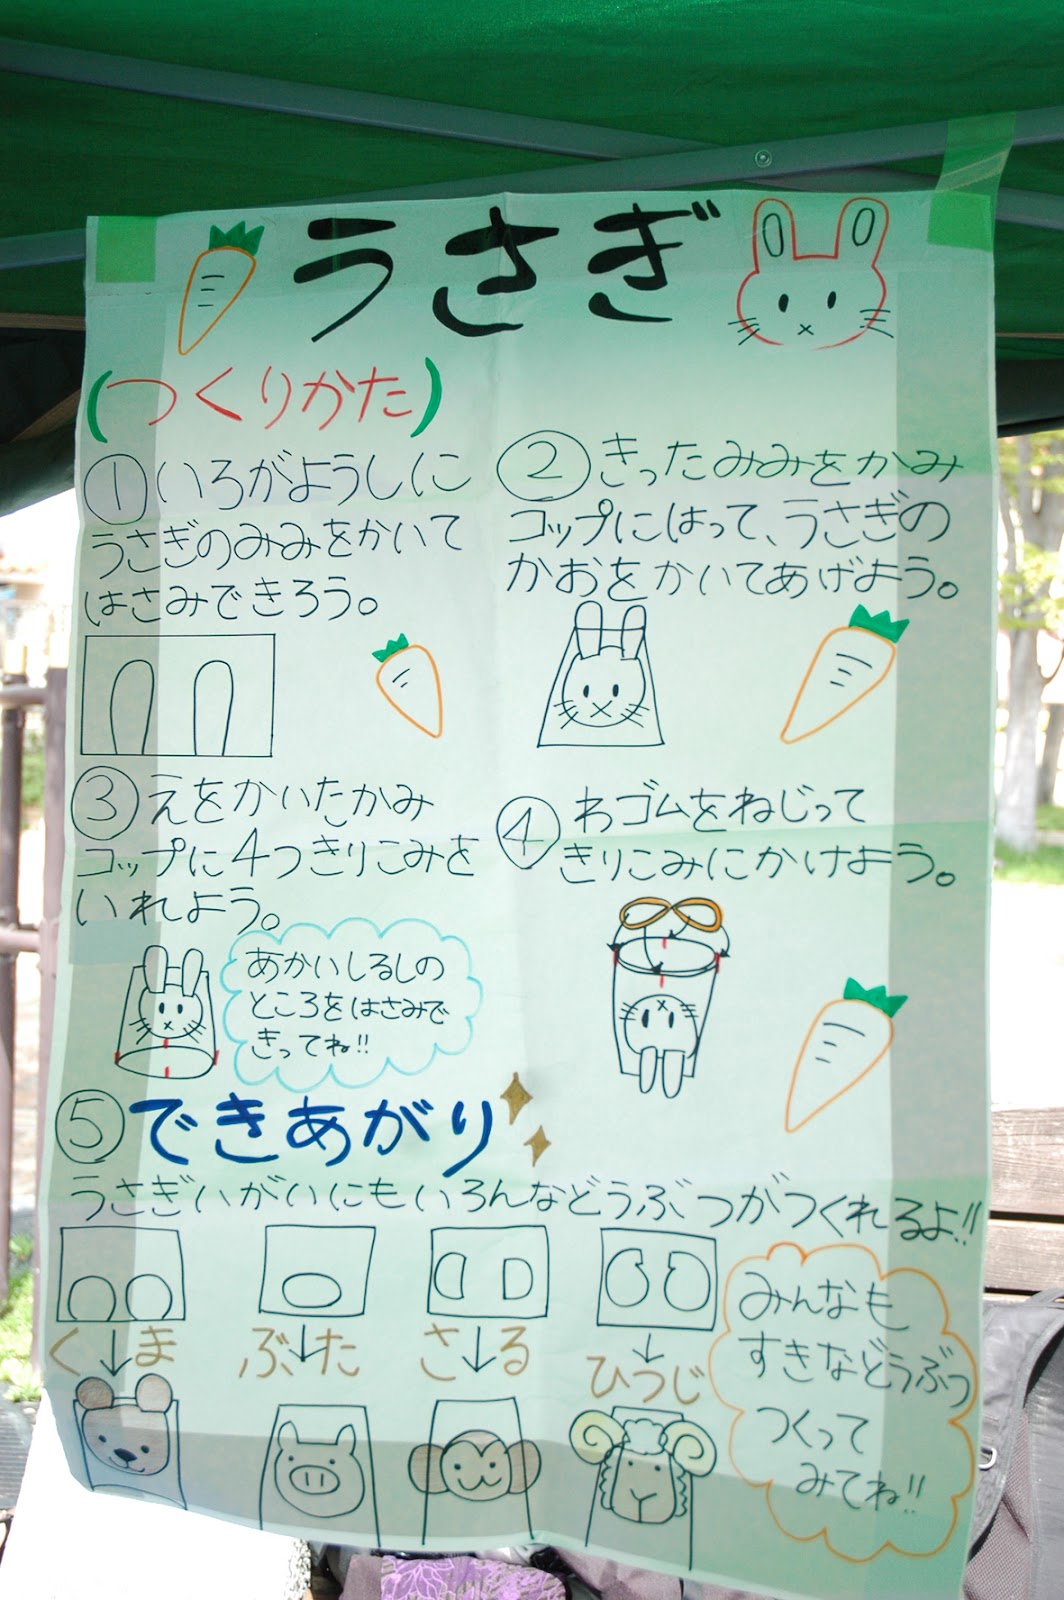 うさぎ
(つくりかた)
① いろがようしに
うさぎのみみをかいて
はさみできろう。
② きったみみをかみ
コップにはって、うさぎの
かおをかいてあげよう。
③ えをかいたかみ
コップに4つきりこみを
いれよう。
あかいしるしの
ところをはさみで
きってね!!
④ わゴムをねじって
きりこみにかけよう。
⑤ できあがり
うさぎいがいにもいろんなどうぶつがつくれるよ!!
くま
ぶた
さる
ひつじ
みんなも
すきなどうぶつ
つくって
みてね!!